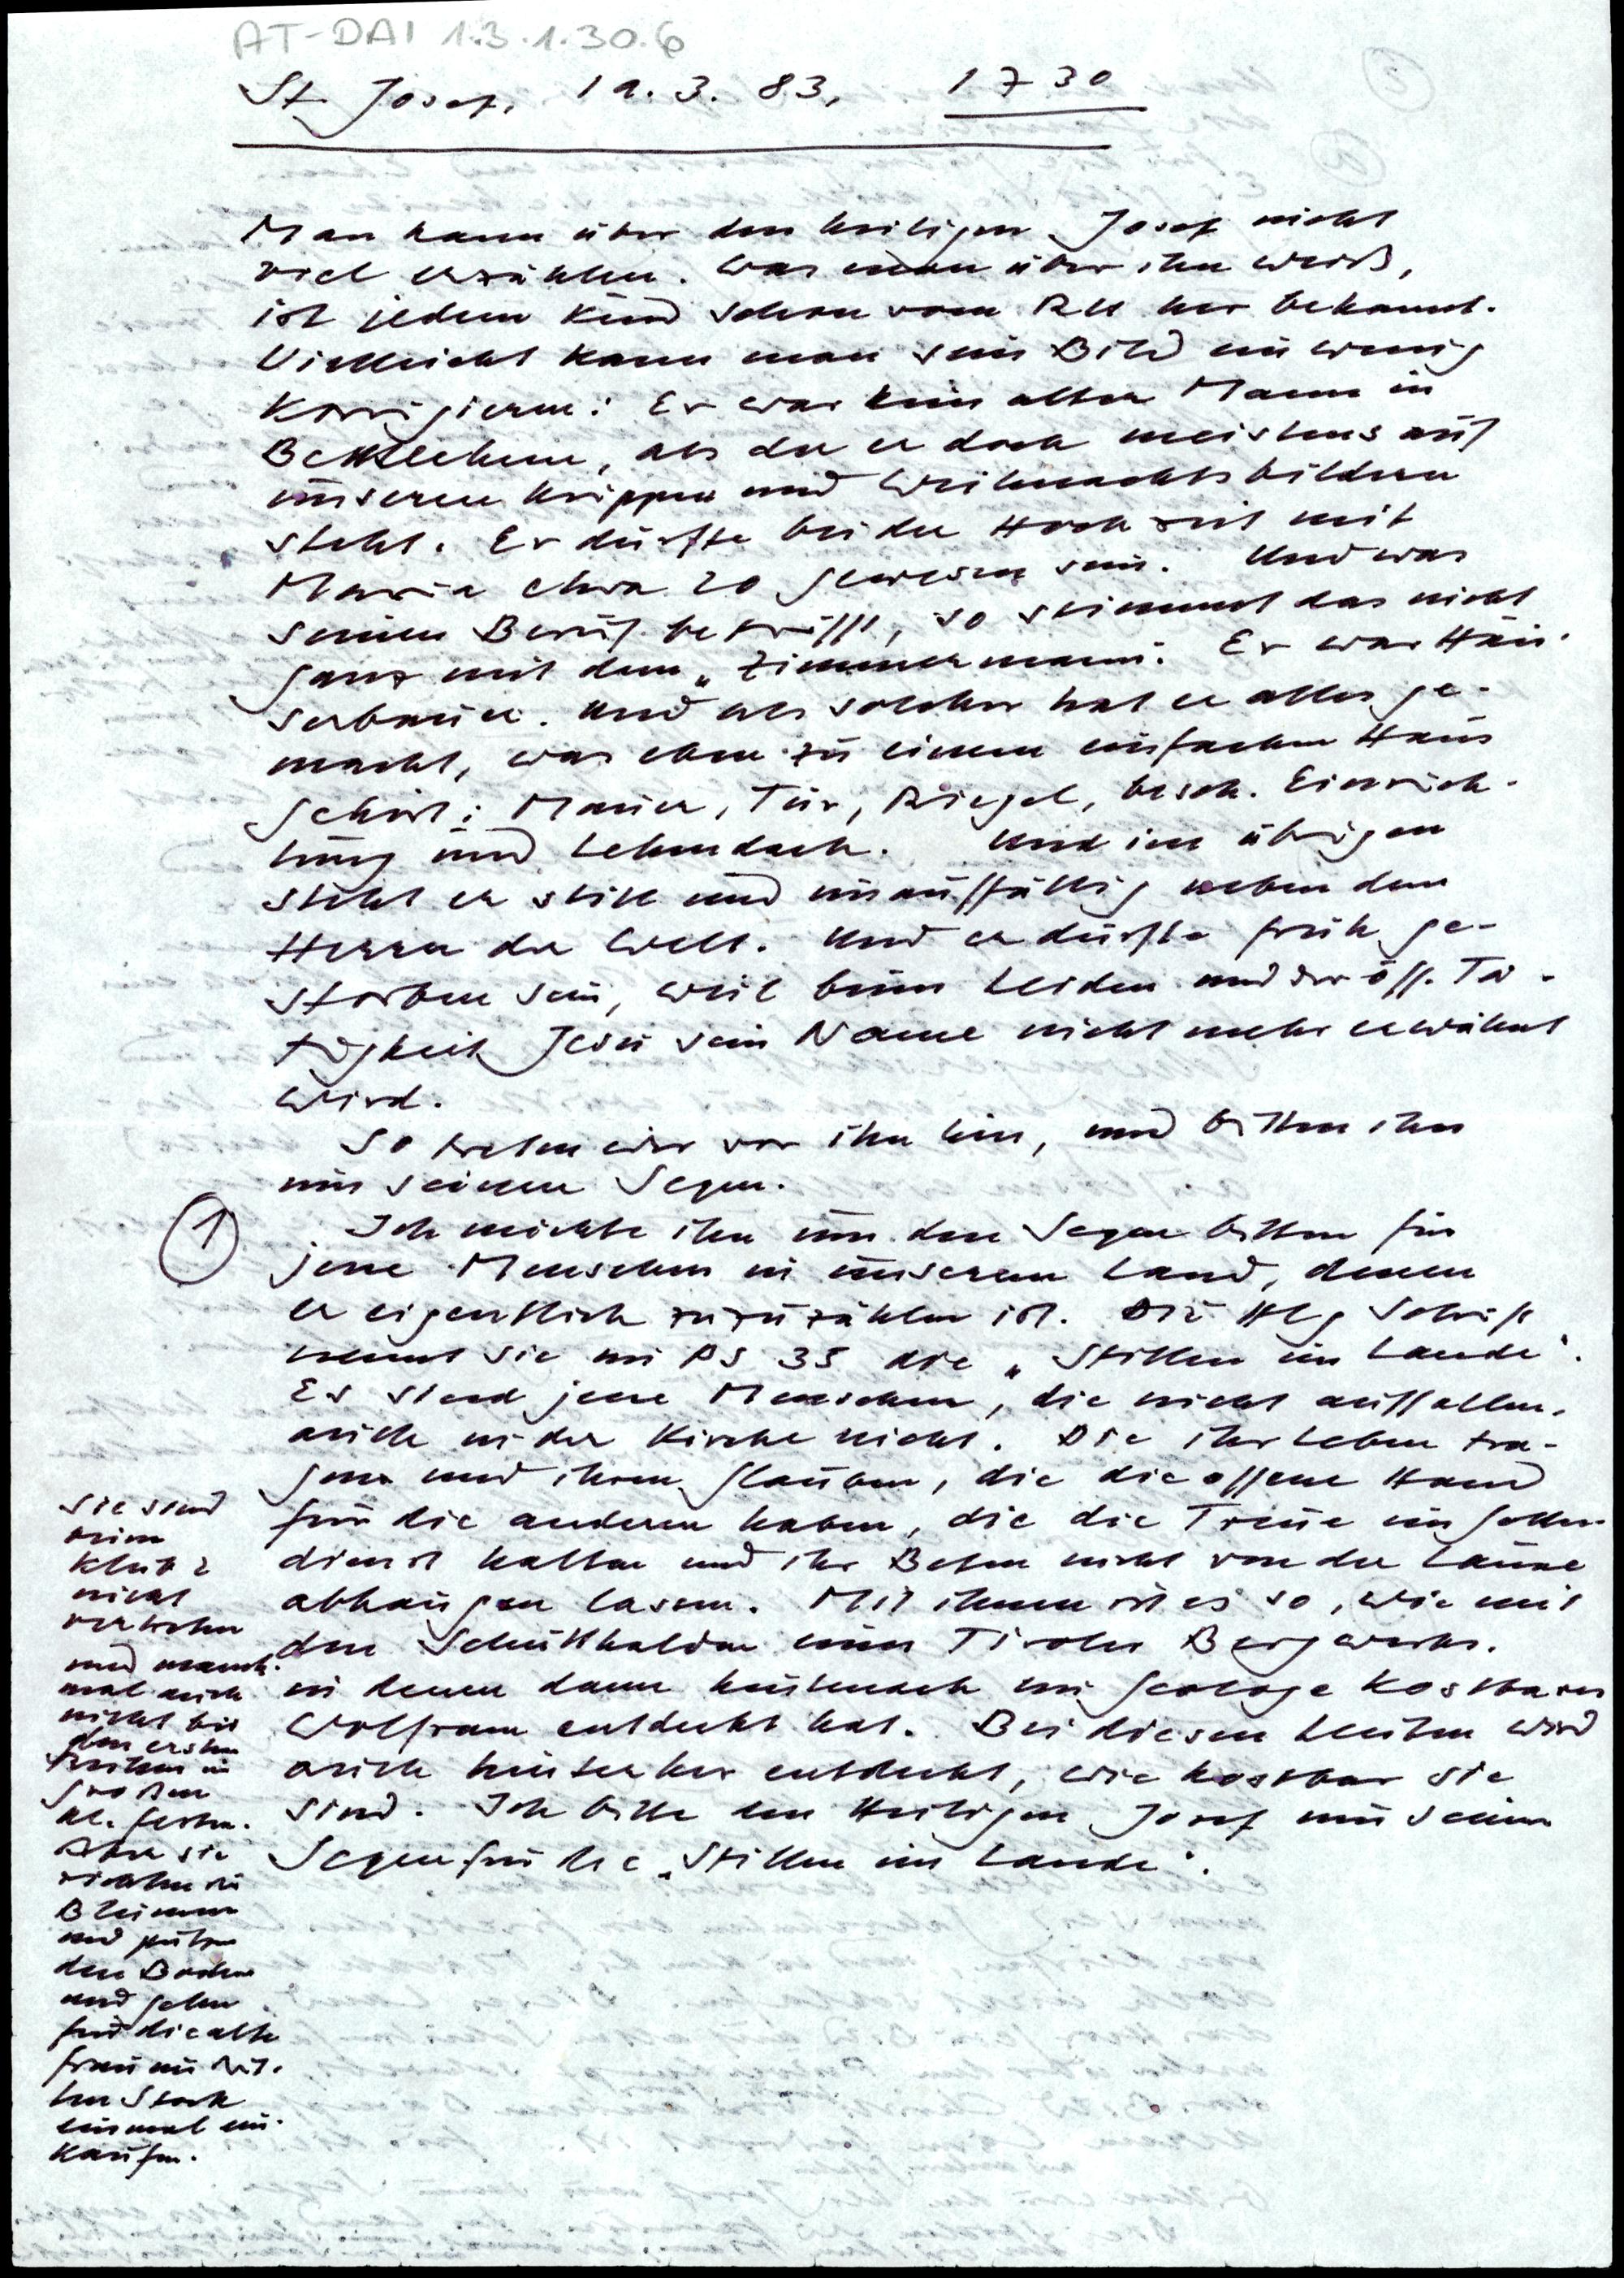 AT-DAI 1.3.1.30.6
St. Josef, 19. 3. 83, 17 30
Man kann über den heiligen Josef nicht
viel erzählen. Was man über ihn weiß,
ist jedem Kind schon vom RU her bekannt.
Vielleicht kann man sein Bild ein wenig
korrigieren: Er war kein alter Mann in
Bethlehem, als der er doch meistens auf
unseren Krippen und Weihnachtsbildern
steht. Er dürfte bei der Hochzeit mit
Maria etwa 20 gewesen sein. Und was
seinen Beruf betrifft, so stimmt das nicht
ganz mit dem „Zimmermann". Er war Häu-
serbauer. Und als solcher hat er alles ge-
macht, was eben zu einem einfachen Haus
gehört: Mauer, Tür, Riegel, besch. Einrich-
tung und Lehmdach. Und im übrigen
steht er still und unauffällig neben dem
Herrn der Welt. Und er dürfte früh ge-
storben sein, weil beim Leiden und der öff. Tä-
tigkeit Jesu sein Name nicht mehr erwähnt
wird.
So treten wir vor ihn hin, und bitten ihn
um seinen Segen.
1 Ich möchte ihn um den Segen bitten für
jene Menschen in unserem Land, denen
er eigentlich zuzuzählen ist. Die Hlg Schrift
nennt sie im PS 35 die „Stillen im Lande".
Es sind jene Menschen, die nicht auffallen,
auch in der Kirche nicht. Die ihr Leben tra-
gen und ihren Glauben, die die offene Hand
für die anderen haben, die die Treue im Gottes-
dienst halten und ihr Beten nicht von der Laune
abhängen lassen. Mit ihnen ist es so, wie mit
den Schutthalden eines Tiroler Bergwerks.
in denen dann hintennach ein Geologe kostbares
Wolfram entdeckt hat. Bei diesen Leuten wird
auch hinterher entdeckt, wie kostbar sie
sind. Ich bitte den Heiligen Josef um seinen
Segen für die „Stillen im Lande".
Sie sind
beim
Klub 2
nicht
vertreten
und manch-
mal auch
nicht bei
den ersten
Reihen in
großen
Aber sie
richten die
Blumen
und putzen
den Boden
und gehen
für die alte
Frau im drit-
ten Stock
einmal ein-
kaufen.